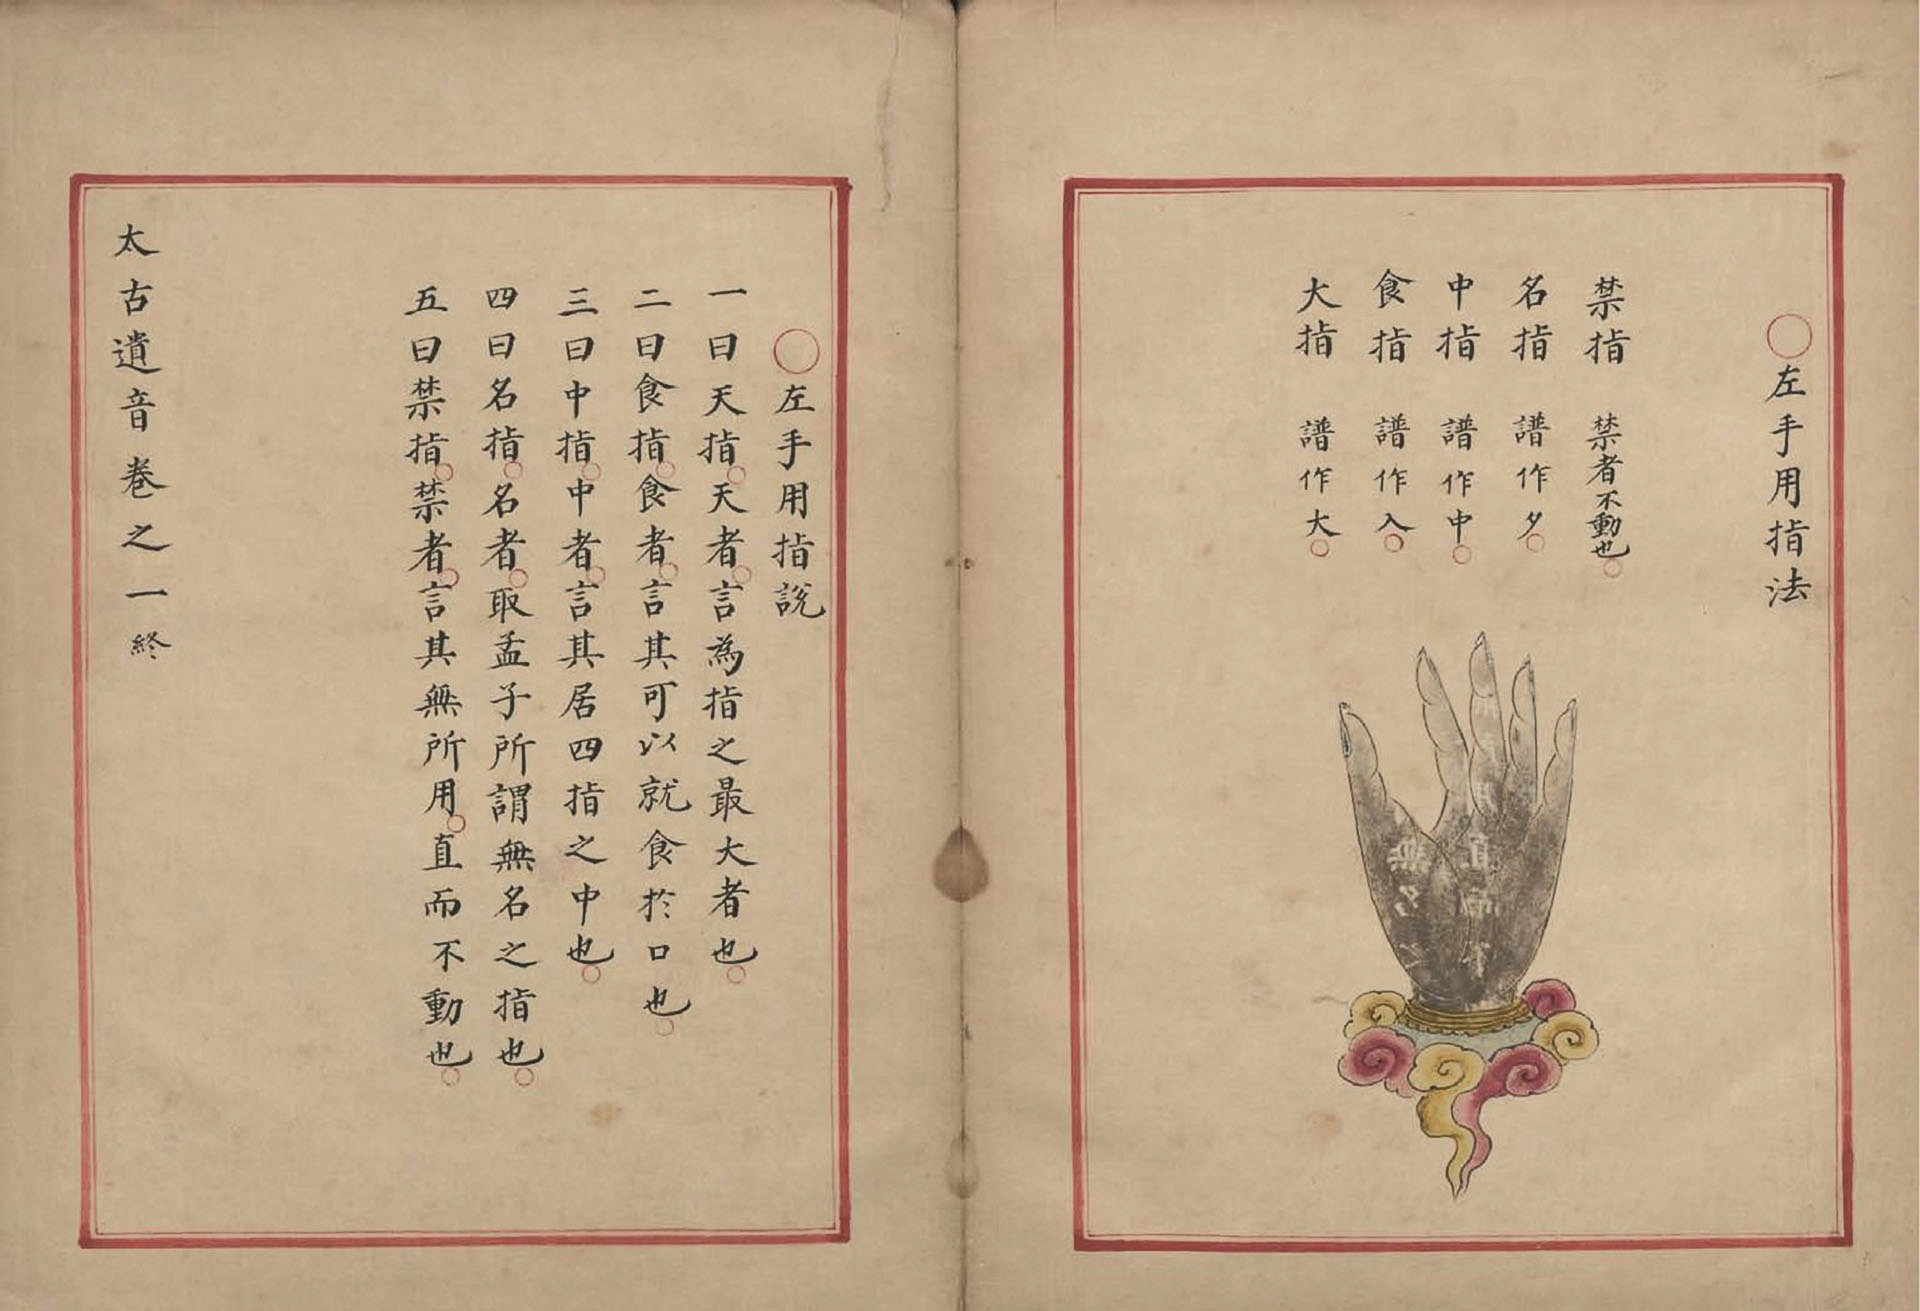 ○左手用指法
禁指 禁者不動也
名指 譜作夕
中指 譜作中
食指 譜作入
大指 譜作大
○左手用指說
一曰天指天者言為指之最大者也
二曰食指食者言其可以就食於口也
三曰中指中者言其居四指之中也
四曰名指名者取孟子所謂無名之指也
五曰禁指禁者言其無所用直而不動也
太古遺音卷之一終